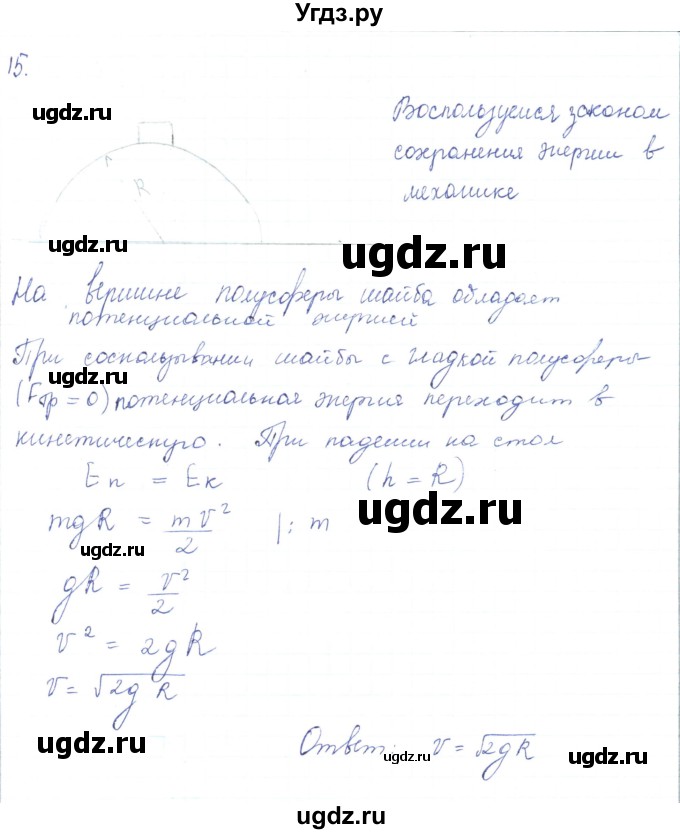 Угдз.ру
15.
ugdz.ru
R
ugdz.ru
Воспользуемся законом
сохранения энергии в
механике
ugdz.ru
ugdz.ru
На вершине полусферы шайба обладает
потенциальной энергией
При соспользывании шайбы с гладкой полусферы
(Fтр = 0) потенциальная энергия переходит в
кинетическую. При падении на стол
Eп = Eк (h = R)
mgR = mv²/2 |: m
ugdz.ru
ugdz.ru
gR = v²/2
v² = 2gR
v = √2gR
ugdz.ru
Ответ: v = √2gR
ugdz.ru
ugdz.ru
ugdz.ru